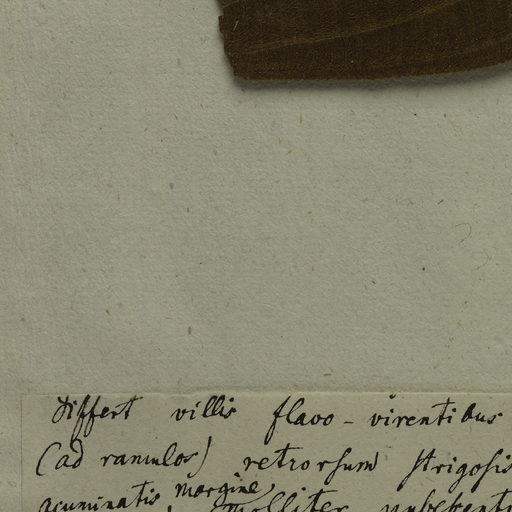 Differt villis flavo-virentibus
(ad ramulos) retrorsum strigosis
acuminatis margine, molliter pubescenti